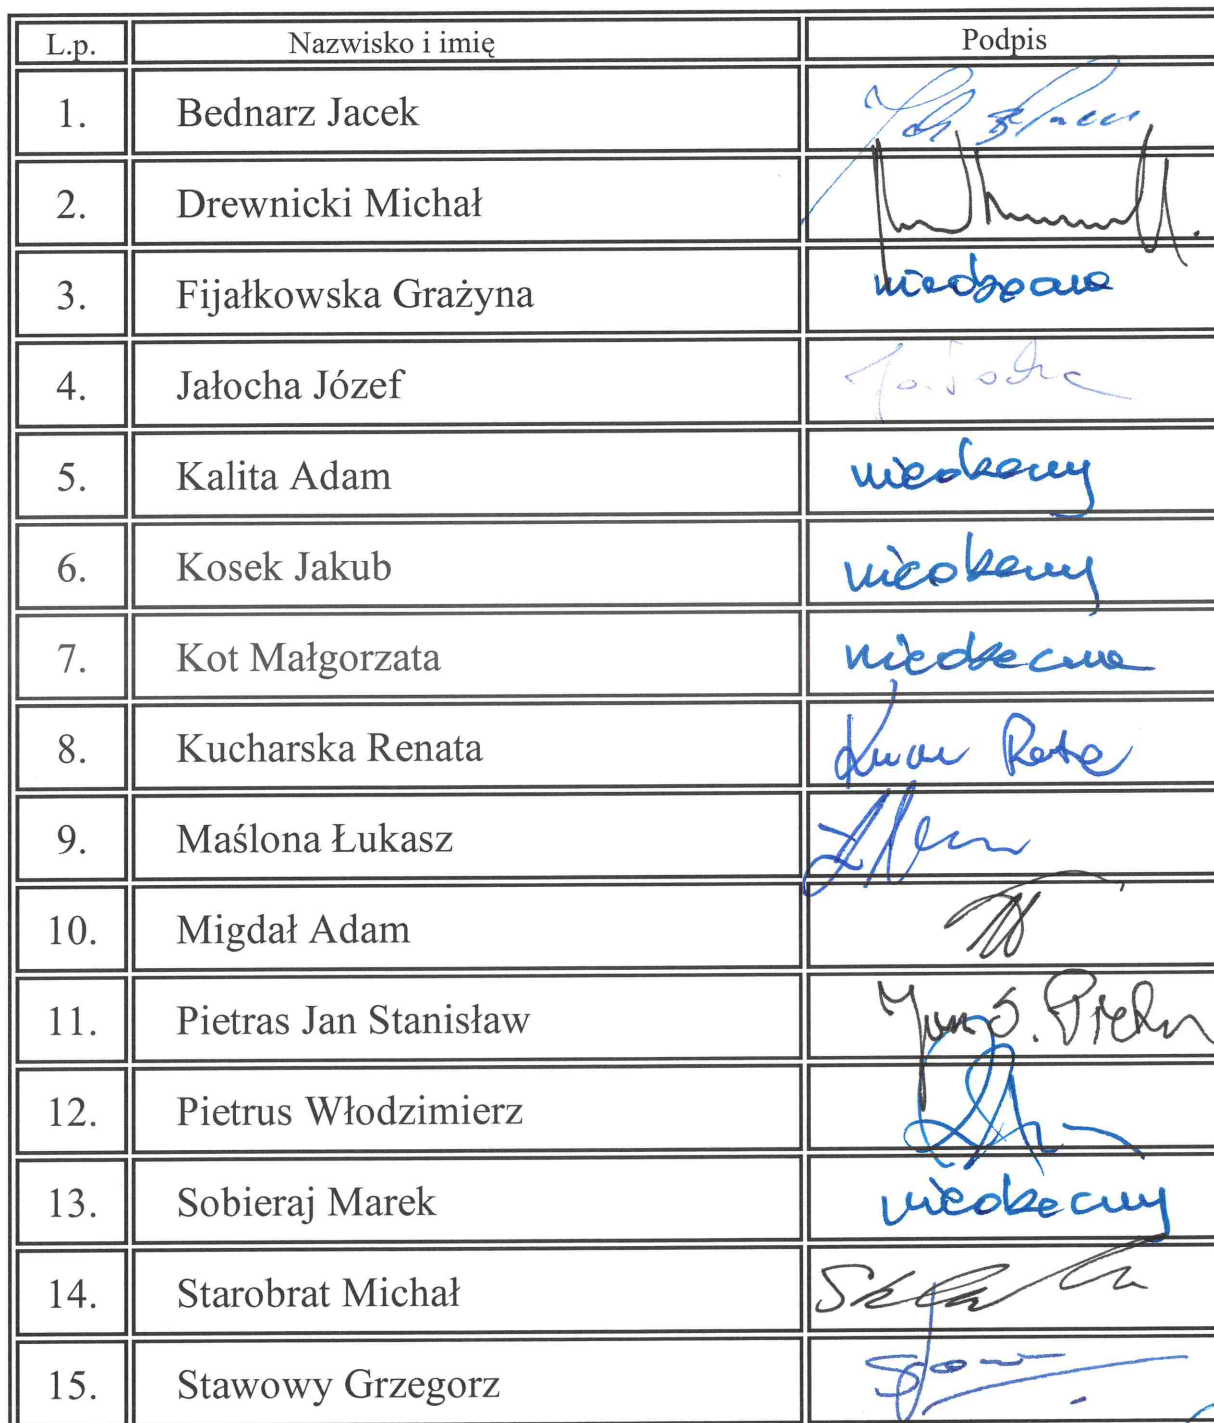 L.p. Nazwisko i imię Podpis
1. Bednarz Jacek
2. Drewnicki Michał
3. Fijałkowska Grażyna nieobecna
4. Jałocha Józef Jałocha
5. Kalita Adam nieobecny
6. Kosek Jakub nieobecny
7. Kot Małgorzata nieobecna
8. Kucharska Renata
9. Maślona Łukasz
10. Migdał Adam
11. Pietras Jan Stanisław Jan S. Pietras
12. Pietrus Włodzimierz
13. Sobieraj Marek nieobecny
14. Starobrat Michał
15. Stawowy Grzegorz